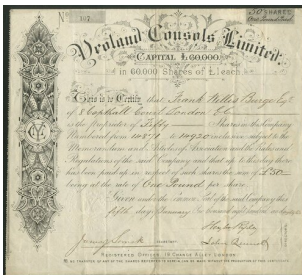 50 SHARES
One Pound Each
No 107
Yeoland Consols Limited
CAPITAL £60,000.
in 60,000 Shares of £1 each
This is to Certify that Frank Willis Burge Esqr
of 8 Copthall Court London E.C.
the Proprietor of Fifty Shares in the Company
Numbered from 10871 to 10920 inclusive, subject to the
Memorandum and Articles of Association and the Rules and
Regulations of the said Company and that up to this day there
has been paid up in respect of such shares the sum of £50
being at the rate of One Pound per share.
Given under the Common Seal of the said Company this
fifth day of January One thousand eight hundred and
SECRETARY
REGISTERED OFFICE,